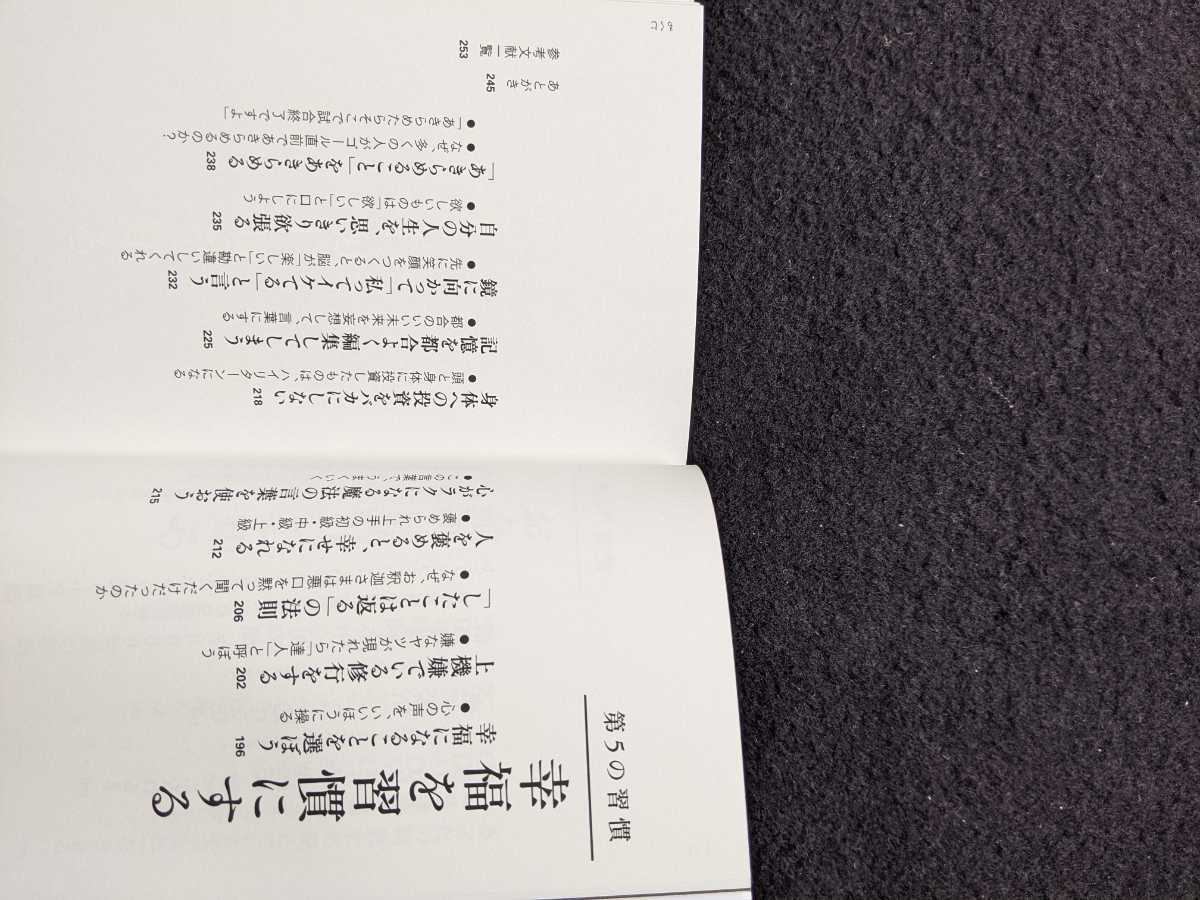 第5の習慣
幸福を習慣にする
幸福になることを選ぼう 196
●心の声を、いいほうに操る
上機嫌でいる修行をする 202
●嫌なヤツが現れたら「達人」と呼ぼう
「したことは返る」の法則 206
●なぜ、お釈迦さまは悪口を黙って聞くだけだったのか
人を褒めると、幸せになれる 212
●褒められ上手の初級・中級・上級
心がラクになる魔法の言葉を使おう 215
●この言葉で、うまくいく
身体への投資をバカにしない 218
●頭と身体に投資したものは、ハイリターンになる
記憶を都合よく編集してしまう 225
●都合のいい未来を妄想して、言葉にする
鏡に向かって「私ってイケてる」と言う 232
●先に笑顔をつくると、脳が「楽しい」と勘違いしてくれる
自分の人生を、思いきり欲張る 235
●欲しいものは「欲しい」と口にしよう
「あきらめること」をあきらめる 238
●なぜ、多くの人がゴール直前であきらめるのか?
●「あきらめたらそこで試合終了ですよ」
あとがき 245
参考文献一覧 253
もくじ